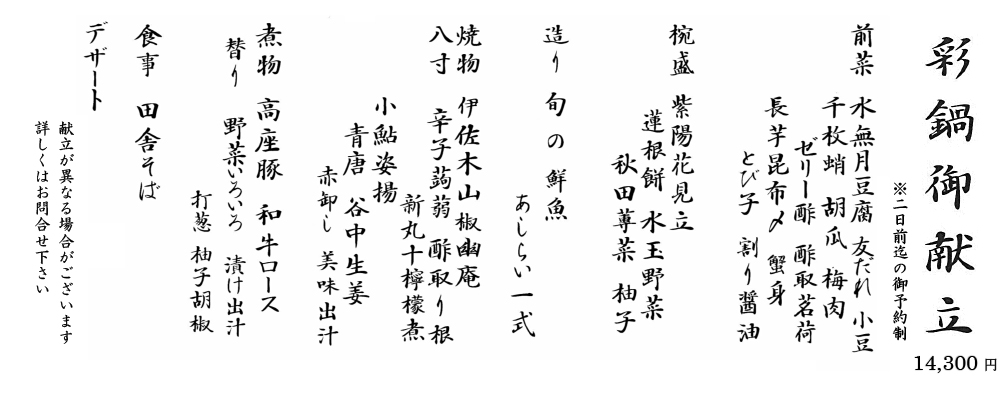 彩鍋御献立
14,300 円
※二日前迄の御予約制
前菜 水無月豆腐 友だれ 小豆
千枚蛸 胡瓜 梅肉
ゼリー酢 酢取茗荷
長芋昆布〆 蟹身
とび子 割り醤油
椀盛 紫陽花見立
蓮根餅 水玉野菜
秋田蓴菜 柚子
造り 旬の鮮魚
あしらい一式
焼物 伊佐木山椒幽庵
八寸 辛子蒟蒻 酢取り根
新丸十檸檬煮
小鮎姿揚
青唐 谷中生姜
赤卸し 美味出汁
煮物 高座豚 和牛ロース
替り 野菜いろいろ 漬け出汁
打葱 柚子胡椒
食事 田舎そば
デザート
献立が異なる場合がございます
詳しくはお問合せ下さい